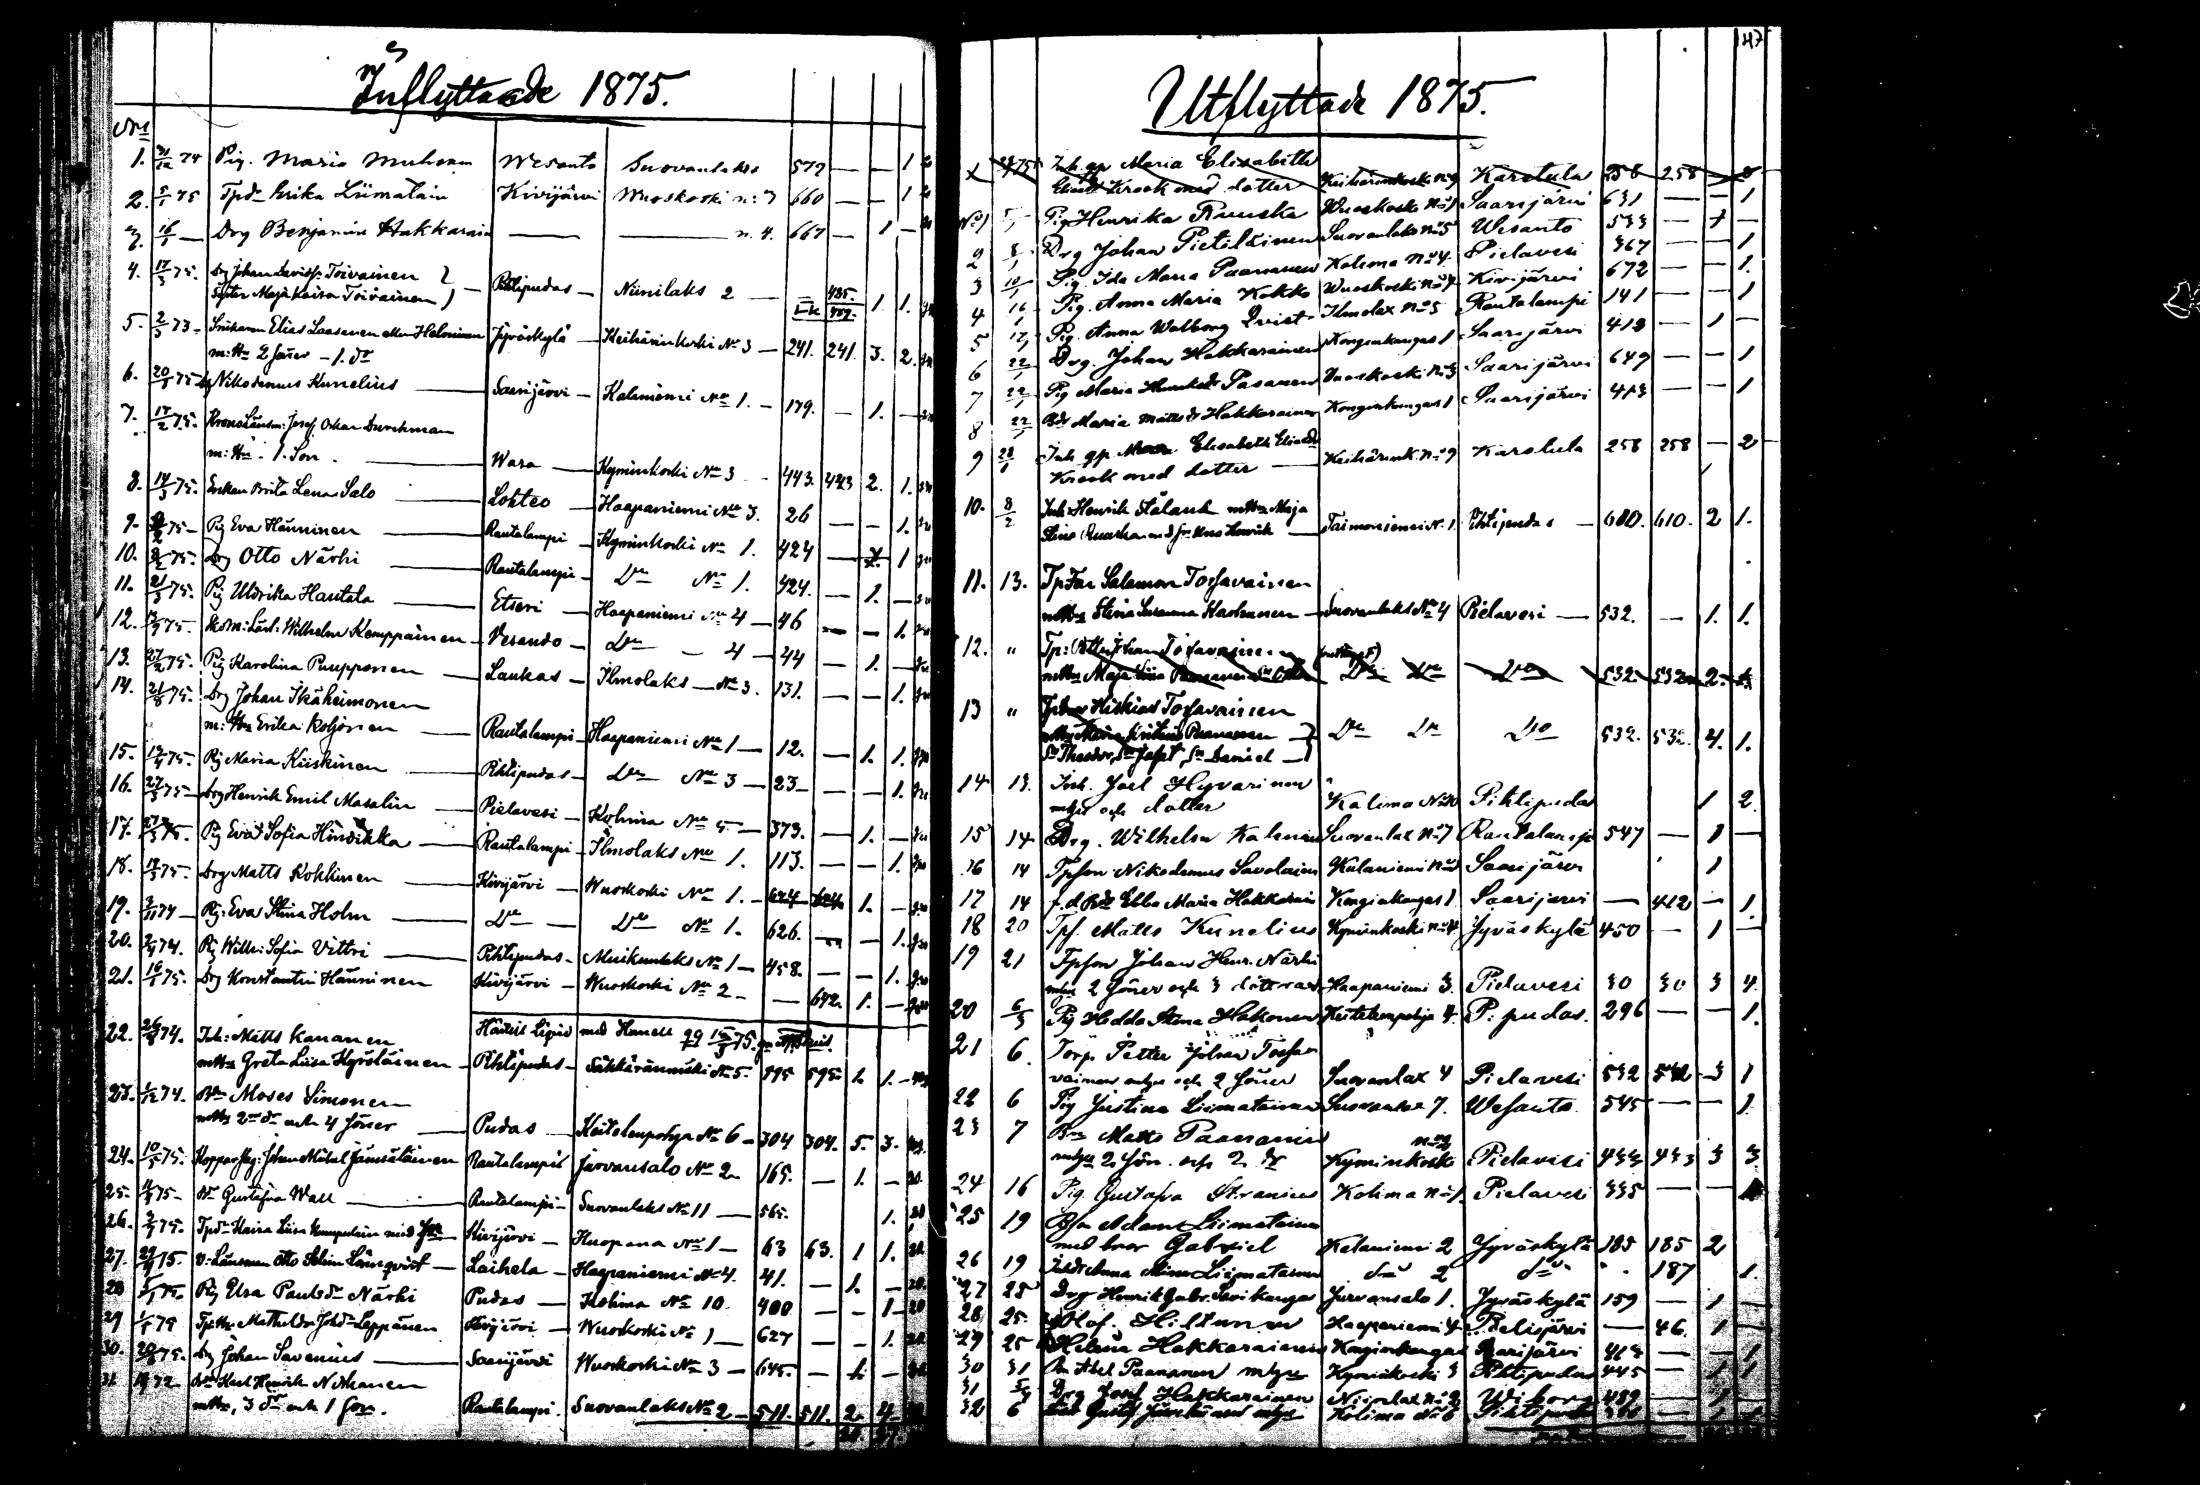 Inflyttade 1875.
No
1. 31/12 74 Pig. Maria Muhonen Wesanto Suovanlaks 577 — — 1
2. 5/1 75 Tpdr Erika Liimatain Kivijärvi Wuoskoski n:o 7 660 — — 1
3. 16/1 — Drg Benjamin Hakkarain — — n. 4. 667 — 1 —
4. 17/3 75. Drg Johan Davidss: Toivainen
Syster Maja Kaisa Toivainen — Pihtipudas — Niinilaks 2 — 1. 1.
5. 2/3 73 — Elias Laasanen eller Halonen Jyväskylä — Keihärinkoski No 3 — 241. 241. 3. 2.
m: Hu 2 söner — 1. dr
6. 20/3 75 Nikodemus Kunelius — Saarijärvi — Kalaniemi No 1. — 179. — 1. —
7. 17/2 75. Kronolänsm: Josef Oskar Durchman
m: Hu. 1. Son. — Wasa — Kyminkoski No 3 443. 443 2. 1.
8. 14/3 75. Enkan Brita Lena Salo — Lohteo — Haapaniemi No 3. 26 — — 1.
9. 75 — Pig Eva Hänninen — Rautalampi — Kyminkoski No 1. 424 — 1
10. 75. Drg Otto Närhi — Rautalampi — Do No 1. 424. — 1. —
11. 21/3 75. Pig Uldrika Hautala — Etseri — Haapaniemi No 4 — 46 — — 1.
12. 75. Wilhelm Kemppainen — Vesando — Do — 4 — 44 — 1. —
13. 27/2 75. Pig Karolina Puupponen — Laukas — Ilmolaks — No 3. 131. — — 1.
14. 21/8 75. Drg Johan Ikäheimonen
m: Hu Erika Koljonen — Rautalampi — Haapaniemi No 1 — 12. — 1. 1.
15. 75. Pig Maria Kiiskinen — Pihtipudas — Do No 3 — 23 — — 1.
16. 27/3 75 — Drg Henrik Emil Masalin — Pielavesi — Kolima No 5 — 373. — 1. —
17. 27/3 75. Pig Eva Sofia Hindikka — Rautalampi — Ilmolaks No 1. 113. — — 1.
18. 75. Drg Matts Kohkinen — Kivijärvi — Wuoskoski No 1. — 1. —
19. 3/11 74 — Pig: Eva Stina Holm — Do — Do No 1. 626. — — 1.
20. 74. Pig Wilh: Sofia Vittri — Pihtipudas — Muikunlaks No 1 — 458. — — 1.
21. 16/1 75. Drg Konstantin Hänninen Kivijärvi — Wuoskoski No 2 — — 642. 1. —
22. 26/8 74. Inh: Matts Kananen
mHu Greta Lisa Hyvöläinen — Pihtipudas — No 5. 595 595. 1. 1.
23. 1/12 74. Bn Moses Simonen
mHu 2 dr och 4 söner — Pudas — Keitelenpohja No 6 — 304 304. 5. 3.
24. 10/5 75. Johan Mikael Jämsäläinen Rautalampi Jurvansalo No 2 165. — 1. —
25. 75 — Gustafva Wall — Rautalampi — Suovanlaks No 11 — 565. 1.
26. 75. Tpdr Kaisa Lisa Kumpulain med son Kivijärvi — Kuopana No 1 — 63 63. 1 1.
27. 75. v: Länsman Otto Selim Lönnqvist — Laihela — Haapaniemi No 4. 41. — 1. —
28 Pig Elsa Paulsdr Närhi Pudas — Kolima No 10. 400 — — 1 —
29 1/5 75 Mathilda Johdr Leppänen Kivijärvi — Wuoskoski No 1 — 627 — — 1.
30. 75. Drg Johan Savenius — Saarijärvi Wuoskoski No 3 — 645. — 1. —
31 72 Karl Henrik Nykanen
mHu, 3 dr och 1 son. Rautalampi. Suovanlaks No 2 — 511. 511. 2. 4.
47
Utflyttade 1875.
Inh. gp Maria Elisabeth
Krook med dotter Keihärinkoski no 9 Karstula 258 258
No 1 Pig Henrika Ruuska Wuoskoski No 1 Saarijärvi 631 — — 1
2 Drg Johan Pietiläinen Suovanlaks no 5 Wesanto 533 — 1 —
3 Pig. Ida Maria Paananen Kolima No 4. Pielavesi 367 — — 1.
4 16/1 Pig. Anna Maria Kokko Wuoskoski no 7 Kivijärvi 672 — — 1.
5 Pig. Anna Walborg Qvist Ilmolax no 5 Rautalampi 141 — — 1
6 22/1 Drg. Johan Hakkarainen Konginkangas 1 Saarijärvi 413 — 1 —
7 22/1 Pig Maria Pasanen Wuoskoski no 3 Saarijärvi 649 — — 1
8 22/1 Bdr Maria Mattsdr Hakkarainen Konginkangas 1 Saarijärvi 413 — — 1
9 28/1 Inh gp Elisabeth Eliasdr
Krook med dotter — Keihärink. no 9 Karstula 258 258 — 2
10. 8/2 Inh: Henrik Ståland mHu Maja
Stina Ruuska — Taimoniemi N. 1. Pihtipudas — 610. 610. 2 1.
11. 13. Tpson Salamon Tossavainen
mHu Stina Susanna Karhunen — Suovanlaks No 4 Pielavesi — 532. — 1. 1.
12. " Tp: Petter Johan Tossavainen
mHu Maja Lisa Paananen Do Do Do 532 532 2.
13 " Tpson Hiskias Tossavainen
Paananen
Sn Theodor, Sn Jafet, Sn Daniel — Do Do Do 532. 532. 4. 1.
14 13. Inh. Joel Hyvärinen
mhu och dotter Kolima No 10 Pihtipudas 1 2.
15 14 Drg. Wilhelm Kalmari Suovanlax no 7 Rautalampi 547 — 1 —
16 14 Tpson Nikodemus Savolainen Kalaniemi Saarijärvi 1
17 14 f.d. Bdr Ebba Maria Hakkarain Konginkangas 1 Saarijärvi — 412 — 1
18 20 Tpf. Matts Kunelius Kyminkoski no 4 Jyväskylä 450 — 1 —
19 21 Tpson Johan Henr. Närhi
mhu 2 söner och 3 döttrar Haapaniemi 3. Pielavesi 30 30 3 4.
20 6/3 Pig Hedda Stina Hakonen Keitelenpohja 4. P. pudas. 296 — — 1.
21 6. Torp. Petter Johan Tossa-
vainen mhu och 2 söner Suovanlax 4 Pielavesi 532 532 3 1
22 6 Pig Justina Liimatainen Suovanlax 7. Wesanto 545 — — 1
23 7 Bn Matts Paananen no 2
mhu 2 sön. och 2 dr Kyminkoski Pielavesi 433 433 3 3
24 16 Pig. Gustafva Stranius Kolima no 1 Pielavesi 335 — — 1
25 19 Bson Adam Liimatainen
med bror Gabriel Kalaniemi 2 Jyväskylä 185 185 2
26 19 Anna Mina Liimatainen do 2 do 187 1.
27 25 Drg Henrik Gabr. Savikangas Jurvansalo 1. Jyväskylä 159 — 1 —
28 25 Olof. Hiltunen Haapaniemi 4 Pielisjärvi — 46. 1 —
29 25 Helena Hakkarainen Konginkangas Saarijärvi 413 — — 1
30 31 Bn Abel Paananen mhu Kyminkoski 3 Pihtipudas 445 — 1 1
31 Drg Josef Hakkarainen Niinilax no 2 Wiborg 489 — 1
32 6 Gustaf mhu Kolima No 6 Pihtipudas 1 1